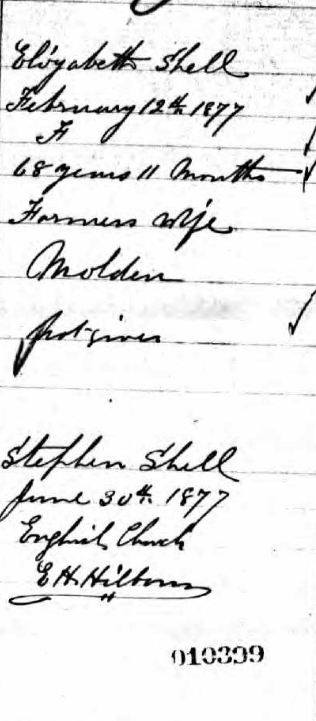 Elizabeth Shell
February 12th 1877
F
68 years 11 Months
Farmers Wife
Molden
not given
Stephen Shell
June 30th 1877
English Church
E H Hilborn
010399